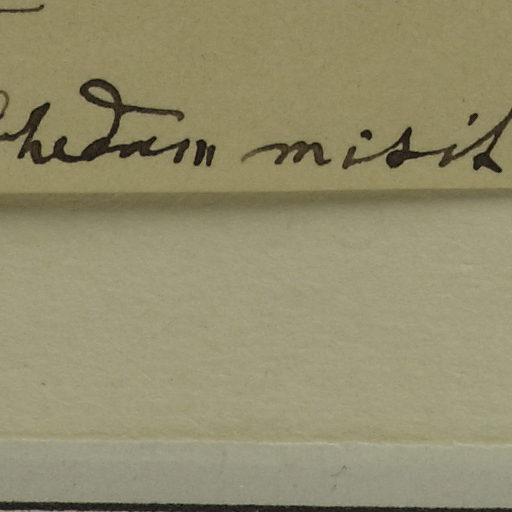 chedam misit